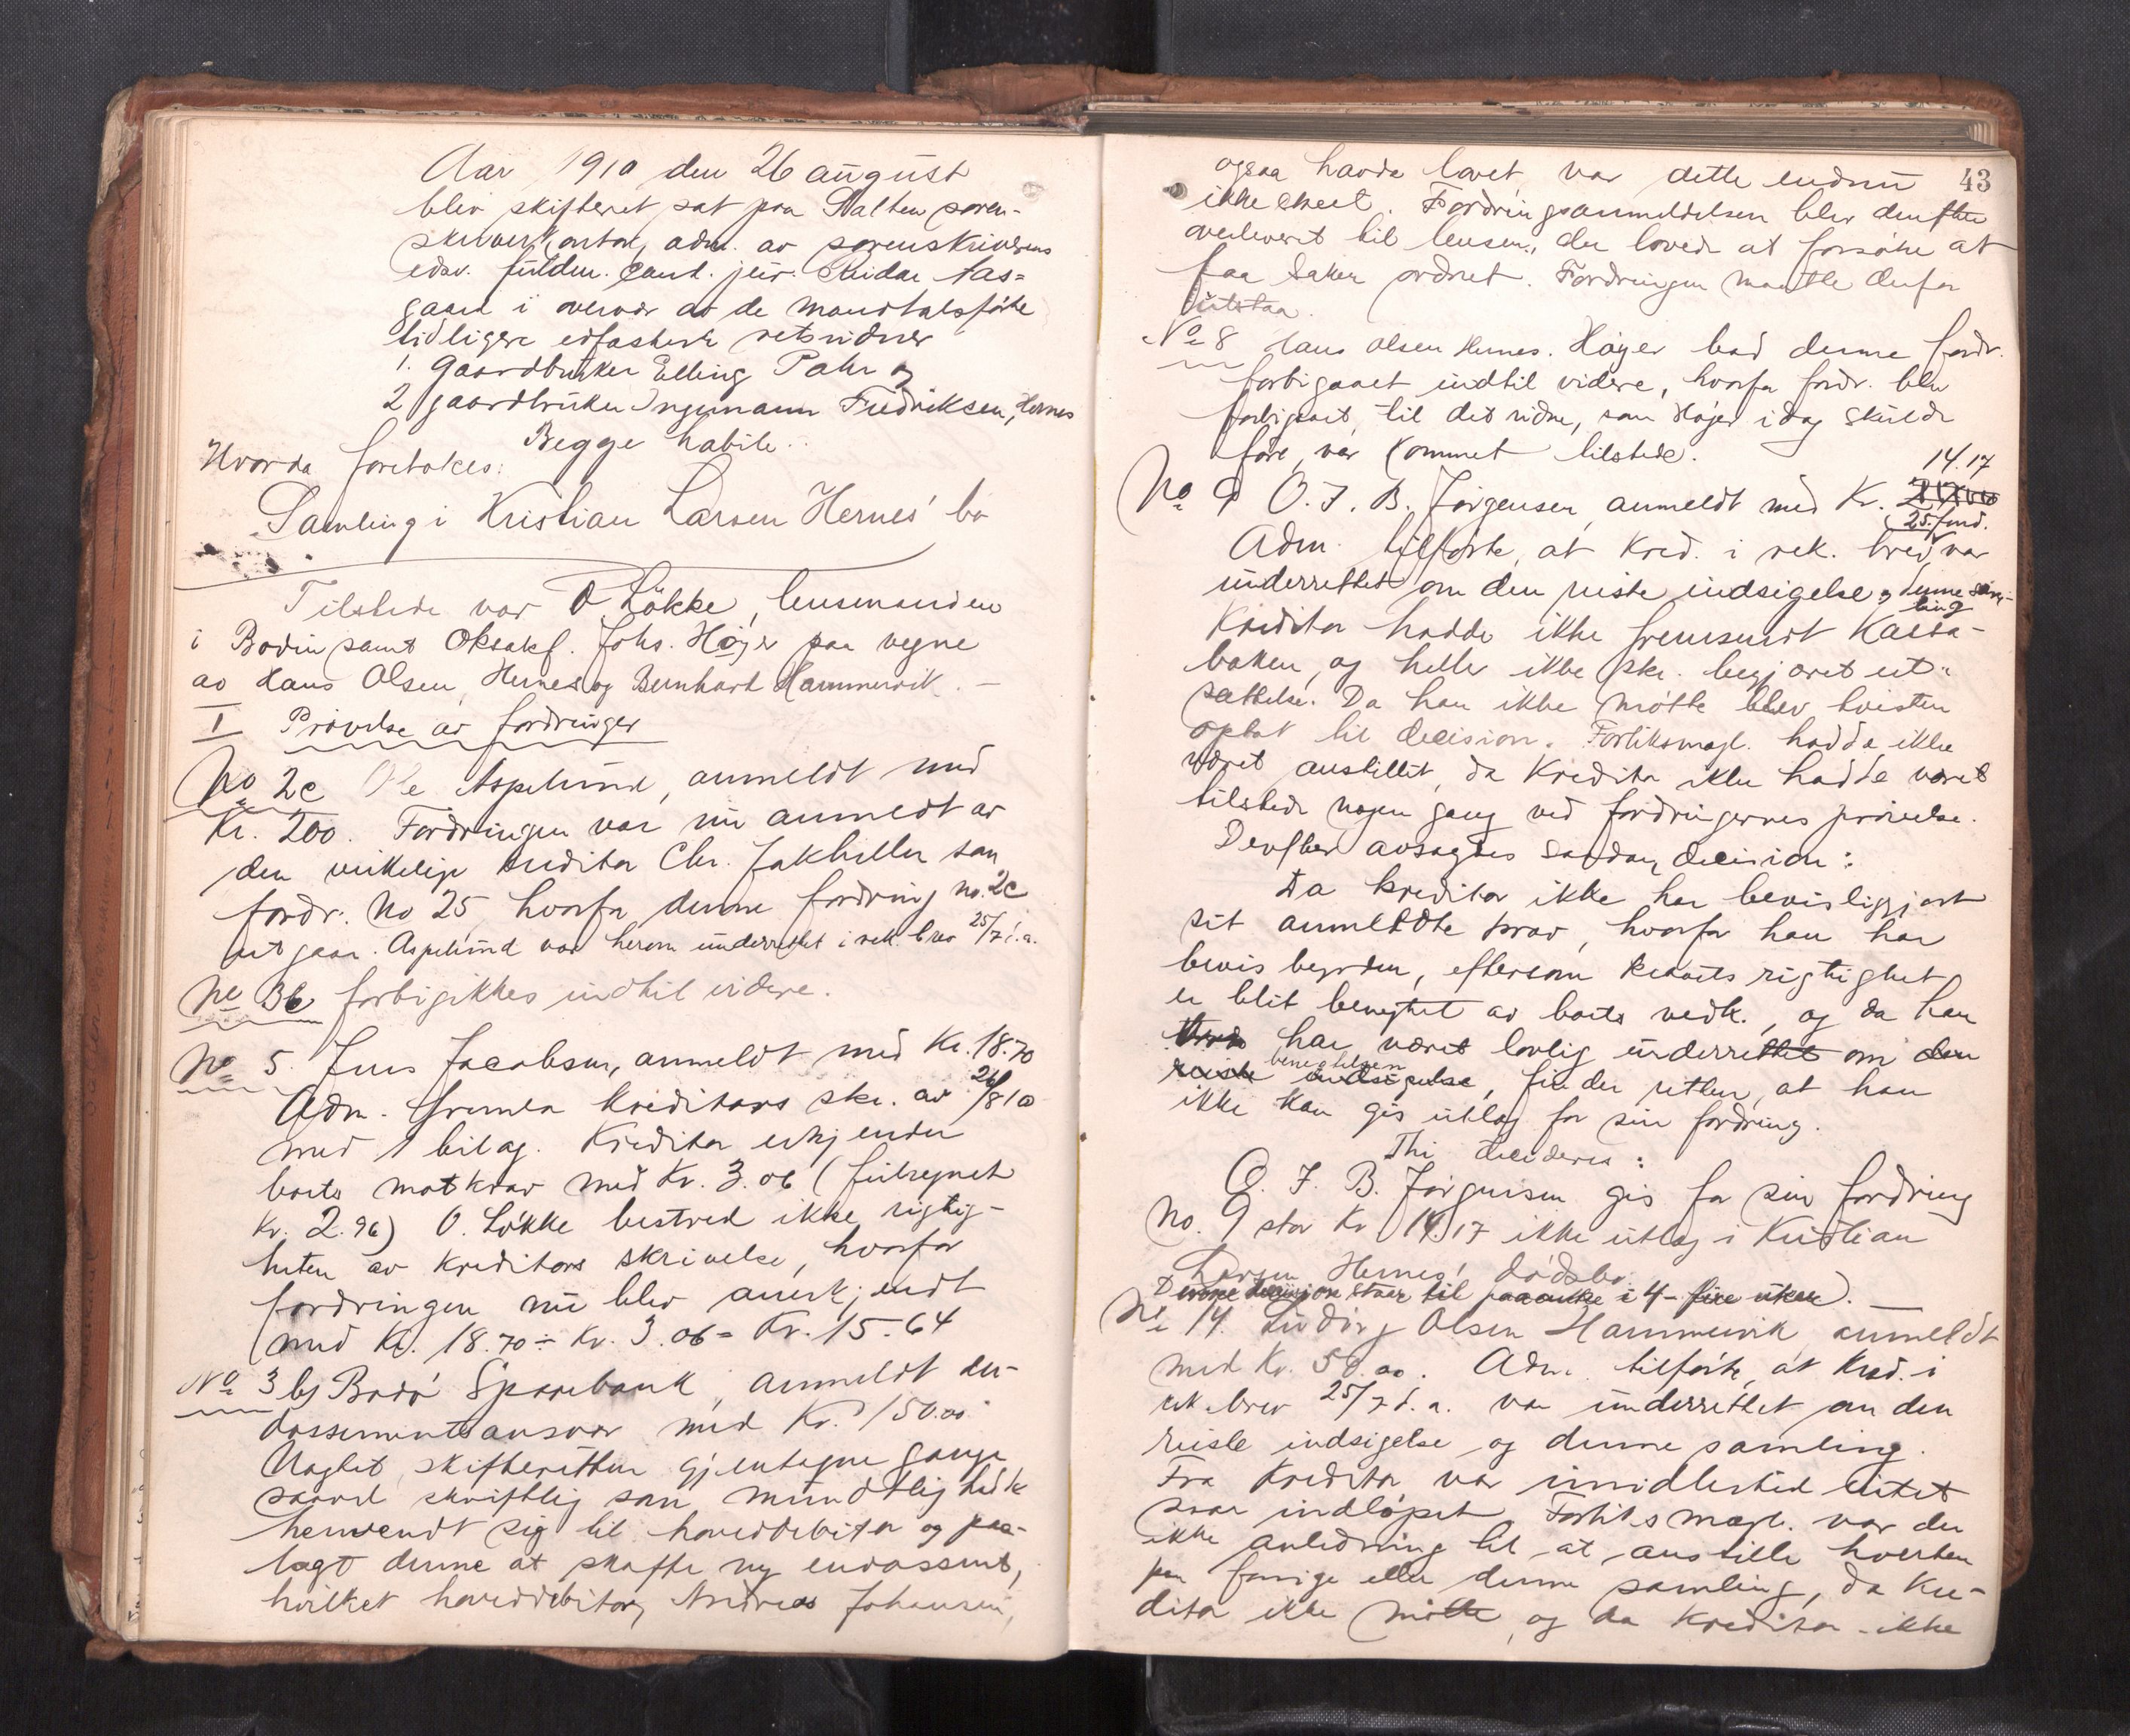 Aar 1910 den 26 august
blev skifteret sat paa Salten soren-
skriverkontor, adm. av sorenskriverens
edsv. fuldm. cand. jur. Reidar Aas=
gaard i overvær av de mandtalsførte
tidligere edfæstede retsvidner
1. Gaardbruker Elling Pahr og
2 gaardbruker Ingemann Fredriksen, Hernes
Begge habile.
Hvorda foretokes:
Samling i Kristian Larsen Hernes' bo
Tilstede var O Løkke, lensmanden
i Bodin samt Oksakf. Johs. Høyer paa vegne
av Hans Olsen, Hernes og Bernhart Hammervik. —
I Prøvelse av fordringer
No 2c Ole Aspelund, anmeldt med
Kr. 200. Fordringen var nu anmeldt av
den virkelige kreditor Chr. Jakhelln som
fordr. No 25, hvorfor denne fordring no. 2c
utgaar. Aspelund var herom underrettet i rek. brev 25/7 d. a.
No 3b forbigikkes indtil videre.
No 5. Jens Jacobsen, anmeldt med Kr. 18.70
Adm. fremla kreditors skr. av 26/8 10
med 1 bilag. Kreditor erkjender
boets motkrav med Kr. 3.06 (feilregnet
Kr. 2.96) O. Løkke bestred ikke rigtig-
heten av kreditors skrivelse, hvorfor
fordringen nu blev anerkjendt
med Kr. 18.70 ÷ Kr. 3.06 = Kr. 15.64
No 3 b) Bodø Sparebank, anmeldt en-
dossementsansvar med Kr. 150.00
Uagtet skifteretten gjentagne gange
saavel skriftlig som mundtlig hadde
henvendt sig til hoveddebitor og paa-
lagt denne at skaffe ny endossent,
hvilket hoveddebitor, Andreas Johansen,
43
ogsaa havde lovet var dette endnu
ikke skeet. Fordringsanmeldelsen blev derefter
overleveret til lensm., der lovede at forsøke at
faa saken ordnet. Fordringen maatte derfor
utstaa.
No 8 Hans Olsen Hernes. Høyer bad denne fordr.
forbigaaet indtil videre, hvorfor fordr. blev
forbigaaet, til det vidne, som Høyer idag skulde
føre, var kommet tilstede.
14.17
No 9 O. J. B. Jørgensen, anmeldt med Kr.
Adm. tilførte, at kred. i rek. brev var
underrettet om den reiste indsigelse, og denne sam-
ling
Kreditor hadde ikke fremsendt Kassa-
boken, og heller ikke skr. begjæret ut-
sættelse. Da han ikke møtte blev tvisten
optat til decision. Forliksmægl. hadde ikke
været anstillet, da kreditor ikke hadde været
tilstede nogen gang ved fordringernes prøvelse.
Derefter avsagdes saadan decision:
Da kreditor ikke har bevisliggjort
sit anmeldte krav, hvorfor han har
bevisbyrden, eftersom kravets rigtighet
er blit benegtet av boets vedk., og da han
har været lovlig underrettet om den
reiste indsigelse benegtelsen, finder retten, at han
ikke kan gis utlæg for sin fordring.
Thi decideres:
O. J. B. Jørgensen gis for sin fordring
No. 9 stor Kr 14.17 ikke utlæg i Kristian
Larsen Hernes' dødsbo.
Denne decision staar til paaanke i 4 - fire uker).
No 14. Ludvig Olsen Hammervik anmeldt
med Kr. 50.00. Adm. tilførte, at Kred. i
rek. brev 25/7 d. a. var underrettet om den
reiste indsigelse og denne samling.
Fra Kreditor var imidlertid intet
svar indløpet. Forliksmægl. var der
ikke anledning til at anstille hverken
paa forrige eller denne samling, da kre-
ditor ikke møtte, og da kreditor ikke